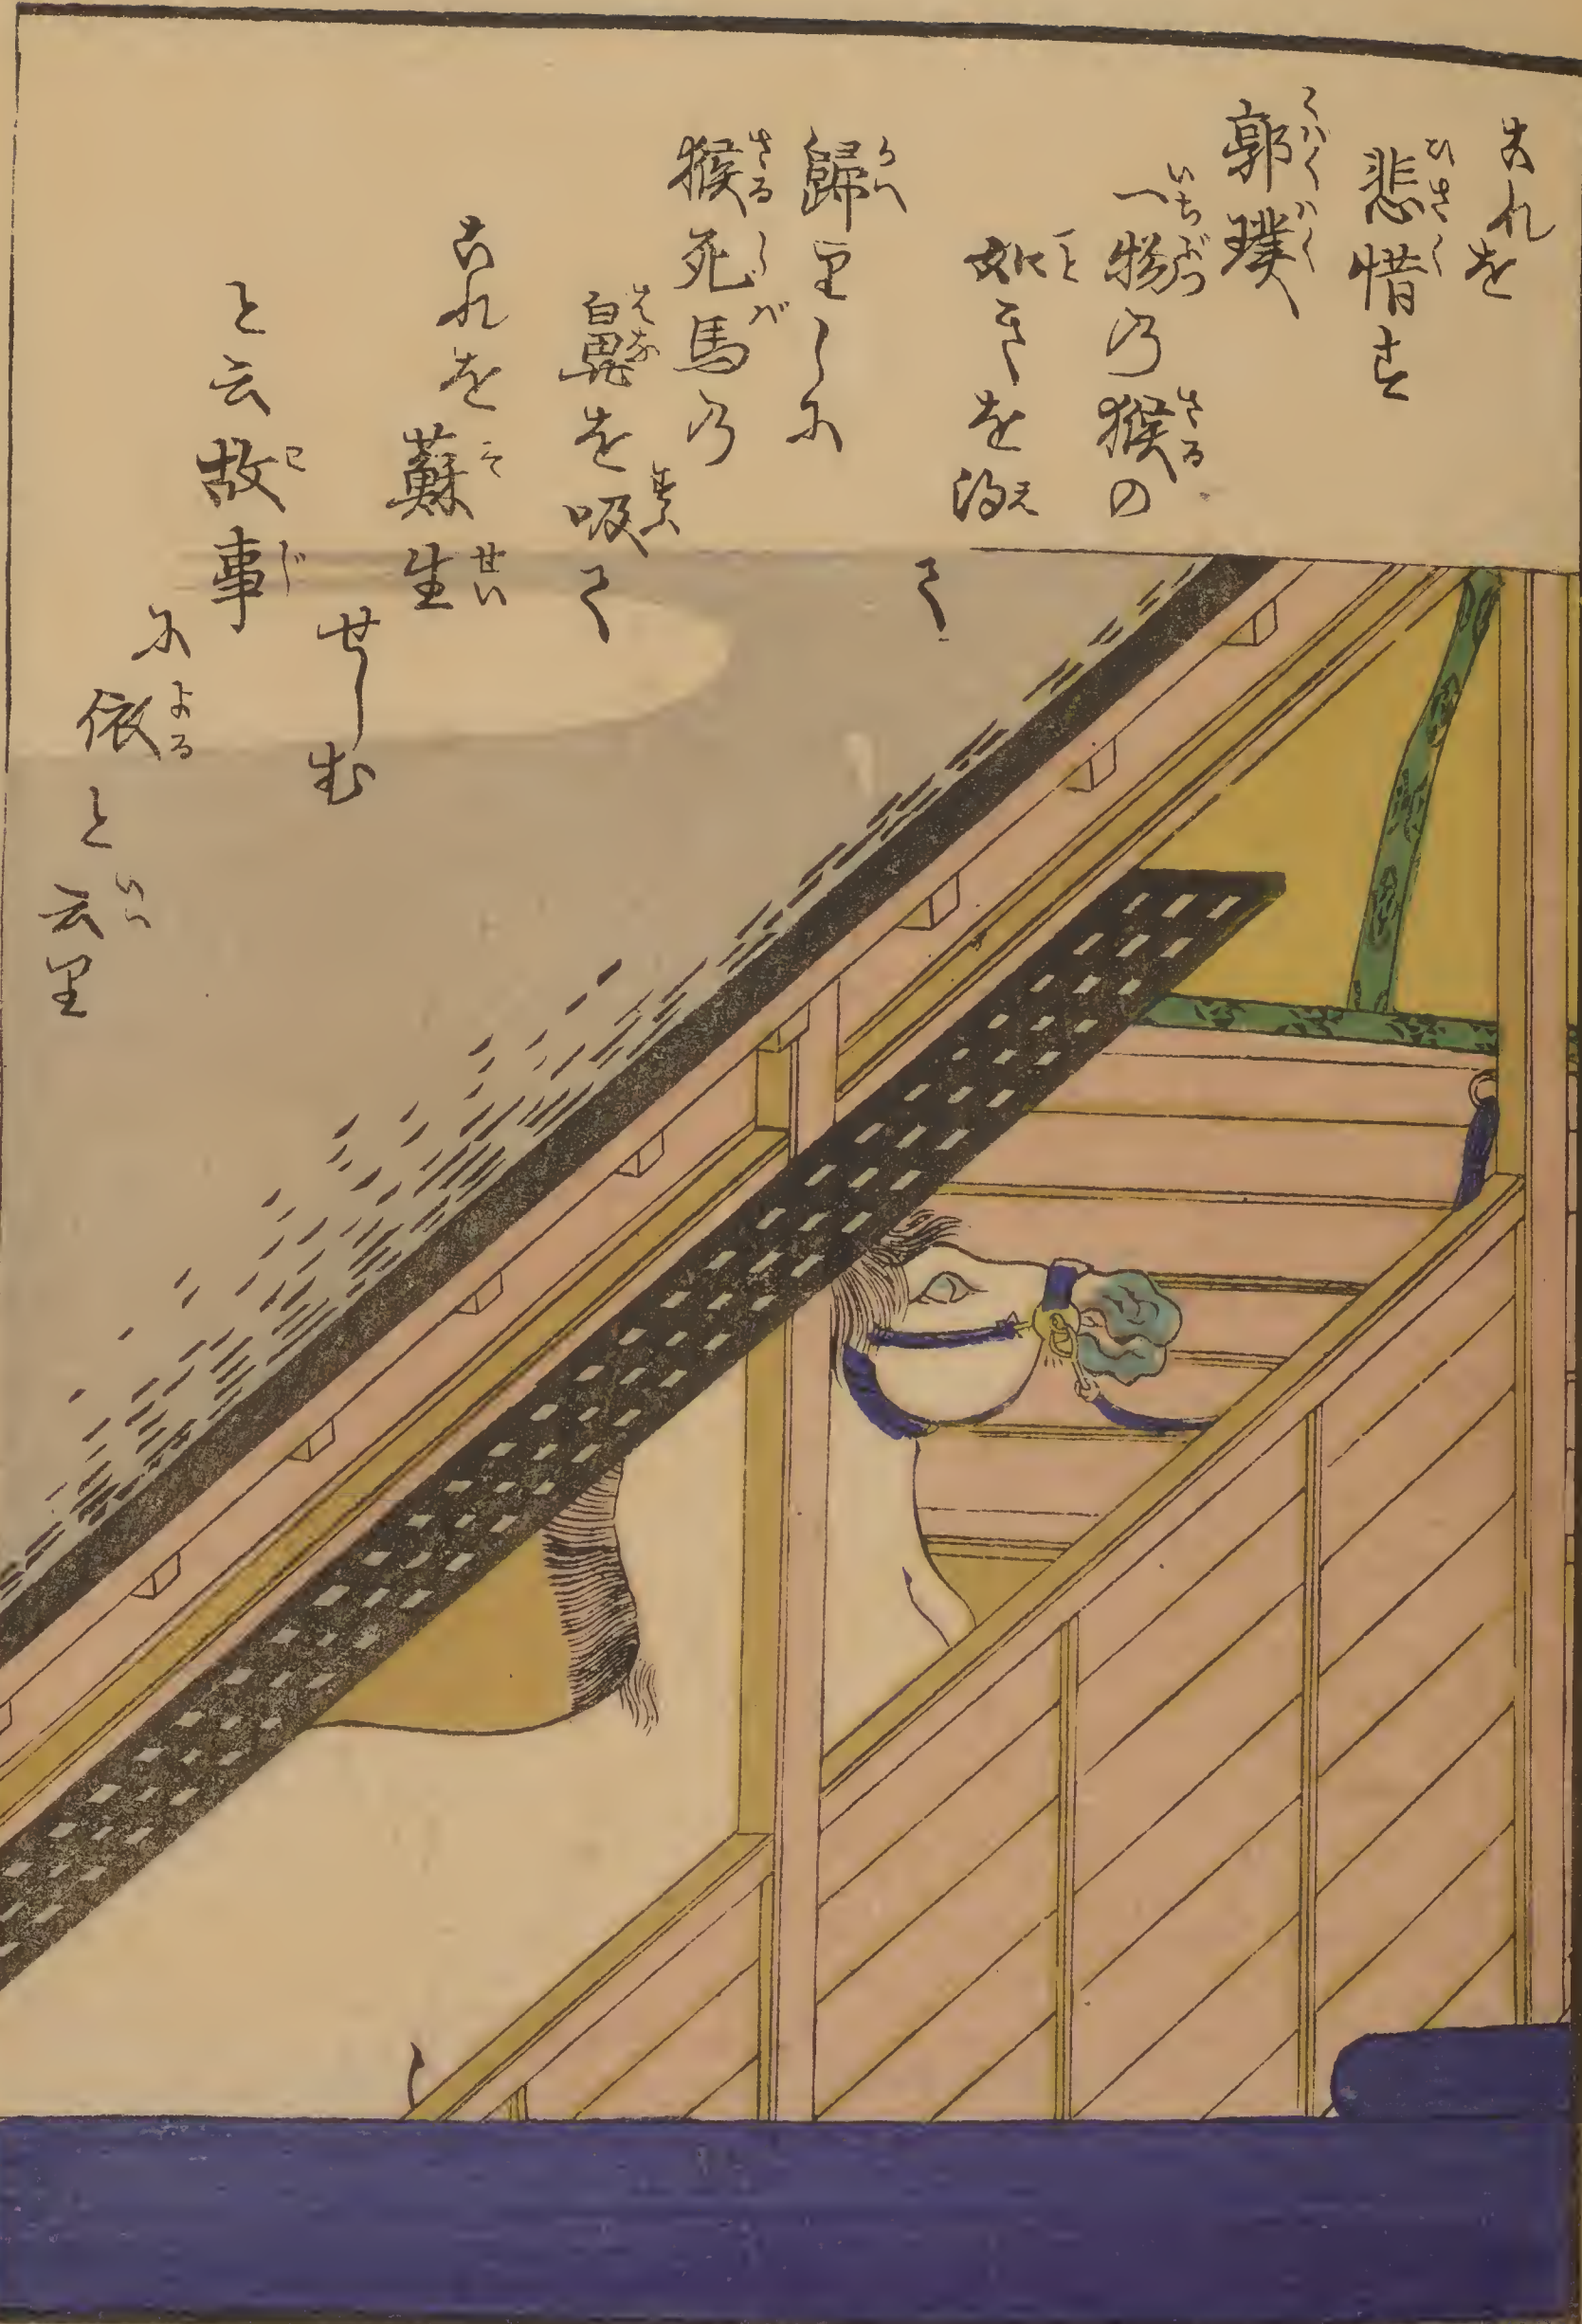 これを
悲惜す
郭璞
一物の猴の
如きを得
て
歸りしに
猴死馬の
鼻を吸て
これを蘇生
せしむ
と云故事
に依
と云り